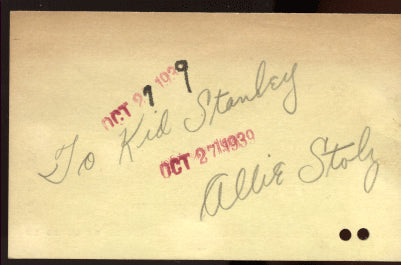 OCT 27 1939
To Kid Stanley
OCT 27 1939
Allie Stolz